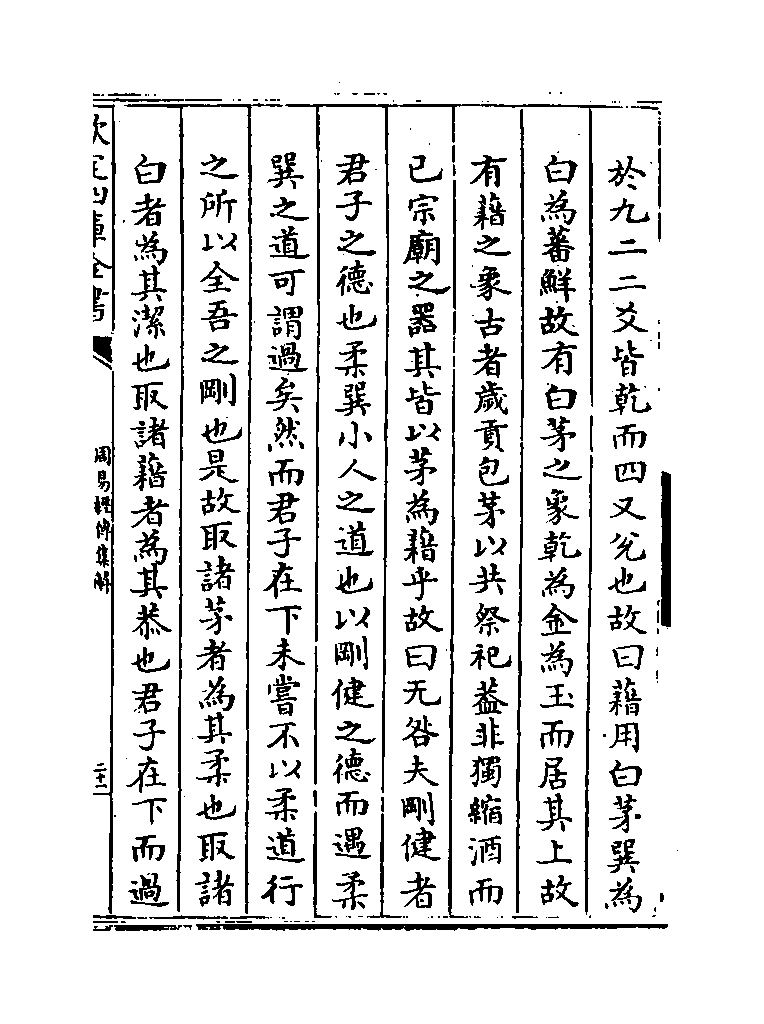 於九二二爻皆乾而四又兊也故曰藉用白茅巽為
白為蕃鮮故有白茅之象乾為金為玉而居其上故
有藉之象古者歳貢包茅以共祭祀葢非獨縮酒而
已宗廟之器其皆以茅為藉乎故曰无咎夫剛健者
君子之德也柔巽小人之道也以剛健之德而遇柔
巽之道可謂過矣然而君子在下未嘗不以柔道行
之所以全吾之剛也是故取諸茅者為其柔也取諸
白者為其潔也取諸藉者為其恭也君子在下而過
欽定四庫全書
周易經傳集解
二十二